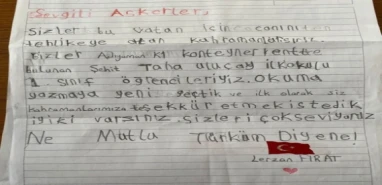 Sevgili Askerler.
Sizler bu vatan için canını
tehlikeye atan kahramanlarsınız.
Bizler Adıyaman K1 konteynerkentte
bulunan Şehit Taha uluçay ilkokulu
1. sınıf öğrencileriyiz. Okuma
yazmaya yeni geçtik ve ilk olarak siz
kahramanlarımıza teşekkür etmek istedik
iyiki varsınız sizleri çok seviyoruz
Ne Mutlu Türküm Diyene!
FIRAT